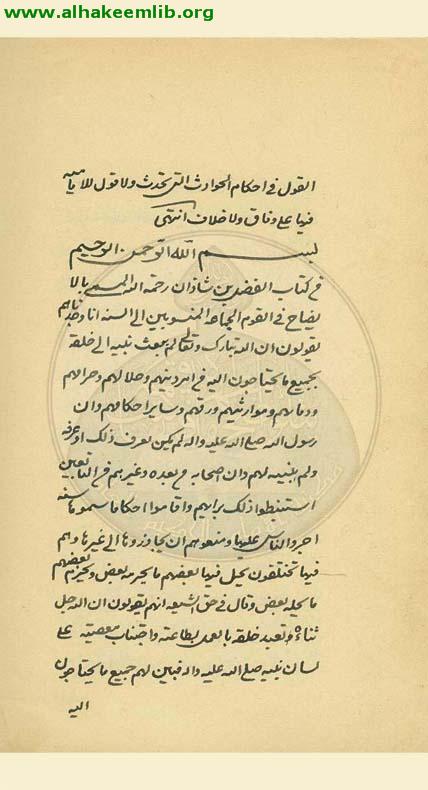 www.alhakeemlib.org
القول في احكام الحوادث التي تحدث ولا قول للامامية
فيها على وفاق ولا خلاف انتهى
بسم الله الرحمن الرحيم
في كتاب الفضل بن شاذان رحمه الله المسمى بالا
يضاح في القوم الجماعة المنسوبين الى السنة انا وجدناهم
يقولون ان الله تبارك وتعالى لم يبعث نبيه الى خلقه
بجميع ما يحتاجون اليه في امر دينهم وحلالهم وحرامهم
ودمائهم ومواريثهم ورقهم وساير احكامهم وان
رسول الله صلى الله عليه واله لم يكن يعرف ذلك او عرفه
ولم يبينه لهم وان اصحابه من بعده وغيرهم من التابعين
استنبطوا ذلك برايهم واقاموا احكاما سموها سنة
اجروا الناس عليها ومنعوهم ان يجاوزوها الى غيرها وهم
فيها مختلفون يحل فيها بعضهم ما يحرمه بعض ويحرم بعضهم
ما يحله بعض وقال في حق الشيعة انهم يقولون ان الله جل
ثناؤه تعبد خلقه بالعمل بطاعته واجتناب معصيته على
لسان نبيه صلى الله عليه واله فبين لهم جميع ما يحتاجون
اليه